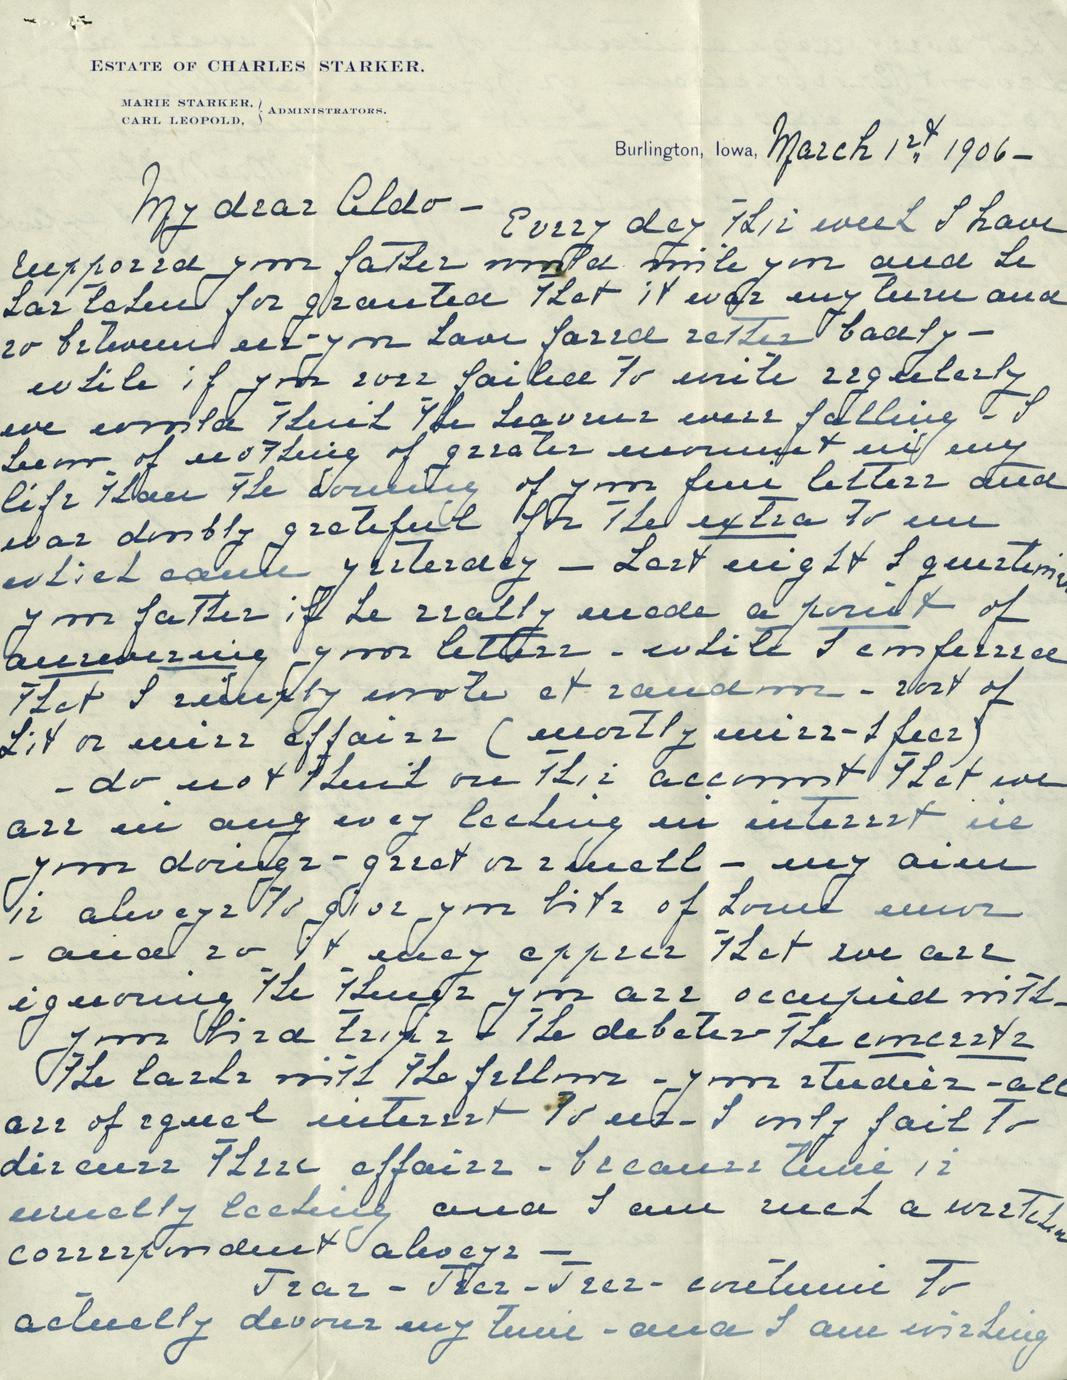 ESTATE OF CHARLES STARKER.
MARIE STARKER,
CARL LEOPOLD,
ADMINISTRATORS.
Burlington, Iowa, March 1st, 1906-
My dear Aldo-
Every day this week I have
supposed your father would write you and he
has taken for granted that it was my turn and
so between us-you have fared rather badly-
while if you ever failed to write regularly
we would think the heavens were falling - I
know of nothing of greater moment in my
life than the coming of your fine letters and
was doubly grateful for the extra to me
which came yesterday - Last night I questioned
your father if he really made a point of
answering your letters - while I confessed
that I simply wrote at random - sort of
hit or miss affairs (mostly miss-I fear)
- do not think on this account that we
are in any way lacking in interest in
your doings-great or small - my aim
is always to give you bits of home news
- and so it may appear that we are
ignoring the things you are occupied with-
your bird trips - the debates-the concerts
the larks with the fellows - your studies - all
are of equal interest to us- I only fail to
discuss these affairs - because time is
usually lacking and I am such a wretched
correspondent always -
Teas - Teas - Teas - continue to
actually devour my time - and I am wishing